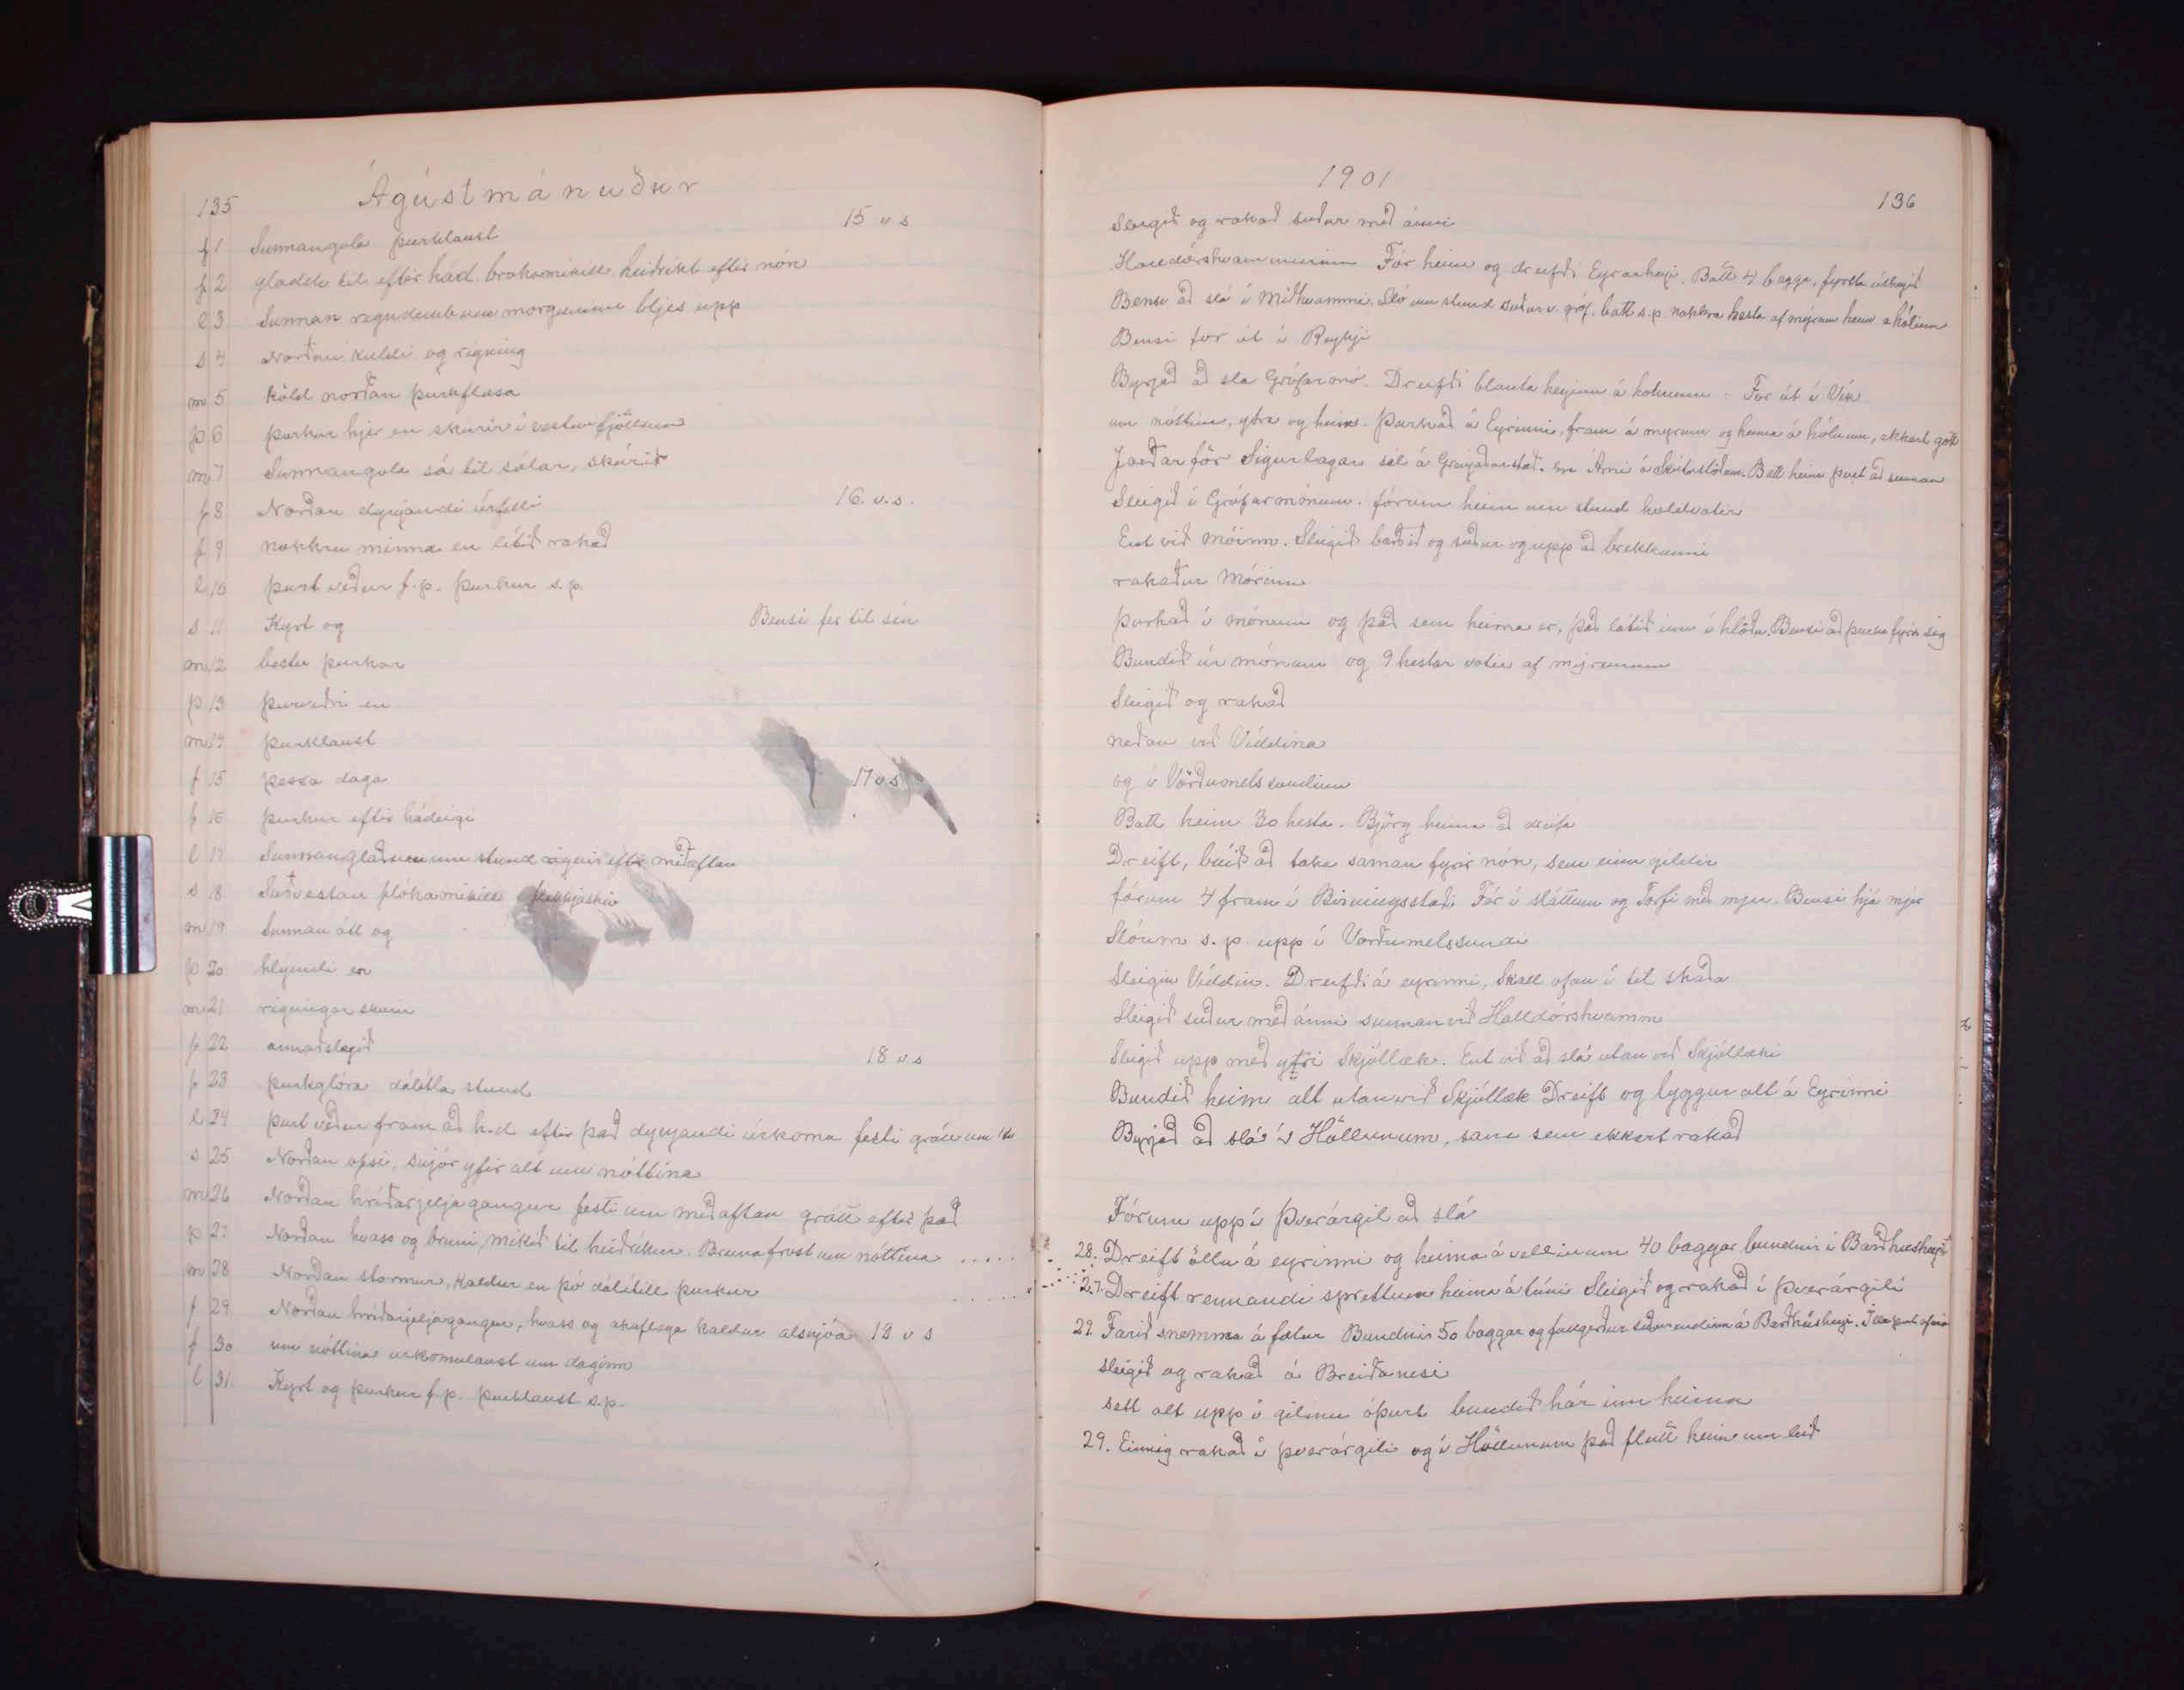 135 Ágústmánuður
f 1 Sunnangola þurklaust 15 v s
f 2 gladdi til eftir hád. brakamikill heiðríkt eftir nón
l 3 Sunnan regndemb um morguninn bljes upp
s 4 Norðan kuldi og rigning
m 5 köld norðan þurkflasa
þ 6 þurkur hjer en skúrir í vestur fjöllum
m 7 Sunnangola sá til sólar, skúrir
f 8 Norðan dynjandi úrfelli 16. v. s.
f 9 nokkru minna en lítið rakað
l 10 þurt veður f.p. þurkur s.p.
s 11 Kyrt og Bensi fer til sín
m 12 bestu þurkar
þ 13 þurviðri en
m 14 þurklaust
f 15 þessa daga 17 v s
f 16 þurkur eftir hádeigi
l 17 Sunnan um stund rignir eftir miðaftan
s 18 Suðvestan þlókamikill
m 19 Sunnan átt og
þ 20 hlýindi en
m 21 rigningar skúrir
f 22 annaðslagið 18 v s
f 23 þurkglóra dálitla stund
l 24 þurt veður fram að h.d. eftir það dynjandi úrkoma festi gráu um
s 25 Norðan ofsi, snjór yfir alt um nóttina
m 26 Norðan hríðarjeljagangur festi um miðaftan grátt eftir það
þ 27 Norðan hvass og bruni, mikið til heiðríkur. Brunafrost um nóttina .....
m 28 Norðan stormur, kaldur en þó dálítill þurkur .....
f 29 Norðan hríðarjeljagangur, hvass og ákaflega kaldur alsnjóa 19 v s
f 30 um nóttina úrkomulaust um daginn
l 31 Kyrt og þurkur f.p. þurklaust s.p.
1901
136
Sleigið og rakað suður með ánni
Halldórshvamminum Fór heim og dreifði Eyrarheyi. Batt 4 bagga, fyrsta útheyið
Bensi að slá í Miðhvammi. Sló um stund suður v. gróf. batt s.p. nokkra hesta af mýrum heim á hólinn
Bensi fór út í Reyki
Byrjað að slá Grófarmó. Dreifði blauta heyinu á hólnum - Fór út í Vík
um nóttina, ytra og heim. Þurkað á Eyrinni, fram á mýrum og heima á hólnum, ekkert gott
Jarðarför Sigurlagar sál á Grenjaðarstað. Árni á Skútustöðum. Batt heim þurt að sunnan
Sleigið í Grófarmónum. fórum heim um stund holdvotir
Ent við móinn. Sleigið barðið og suður og upp að brekkunni
rakaður Mórinn
Þurkað í mónum og það sem heima er, það látið inn í hlöðu. Bensi að þurka fyrir sig
Bundið úr mónum og 9 hestar votir af mýrunum
Sleigið og rakað
neðan við Víddina
og í Vörðumelssundinu
Batt heim 30 hesta. Björg heima að dreifa
Dreift, búið að taka saman fyrir nón, sem einn gildir
fórum 4 fram í Birningsstaði Fór í sláttinn og Torfi með mjer. Bensi hjá mjer
Slóum s.p. upp í Vörðumelssundi
Sleigin Víddin. Dreifði á eyrinni, Skall ofan í til skaða
Sleigið suður með ánni sunnan við Halldórshvamm
Sleigið upp með ytri Skjóllæk. Ent við að slá utan við Skjóllæki
Bundið heim alt utanvið Skjóllæk Dreift og lyggur alt á Eyrinni
Byrjað að slá í Höllunum, sama sem ekkert rakað
Fórum upp í Þverárgil að slá
28. Dreift öllu á eyrinni og heima á vellinum 40 baggar bundnir í Barðhúshey
27. Dreift rennandi sprettum heima á túni Sleigið og rakað í Þverárgili
29. Farið snemma á fætur Bundnir 50 baggar og fangaður suðurendinn á Barðhúsheyi.
sleigið og rakað á Breiðanesi
sett alt upp í gilinu óþurt bundið hár inn heima
29. Einnig rakað í Þverárgili og í Höllunum það flutt heim um leið